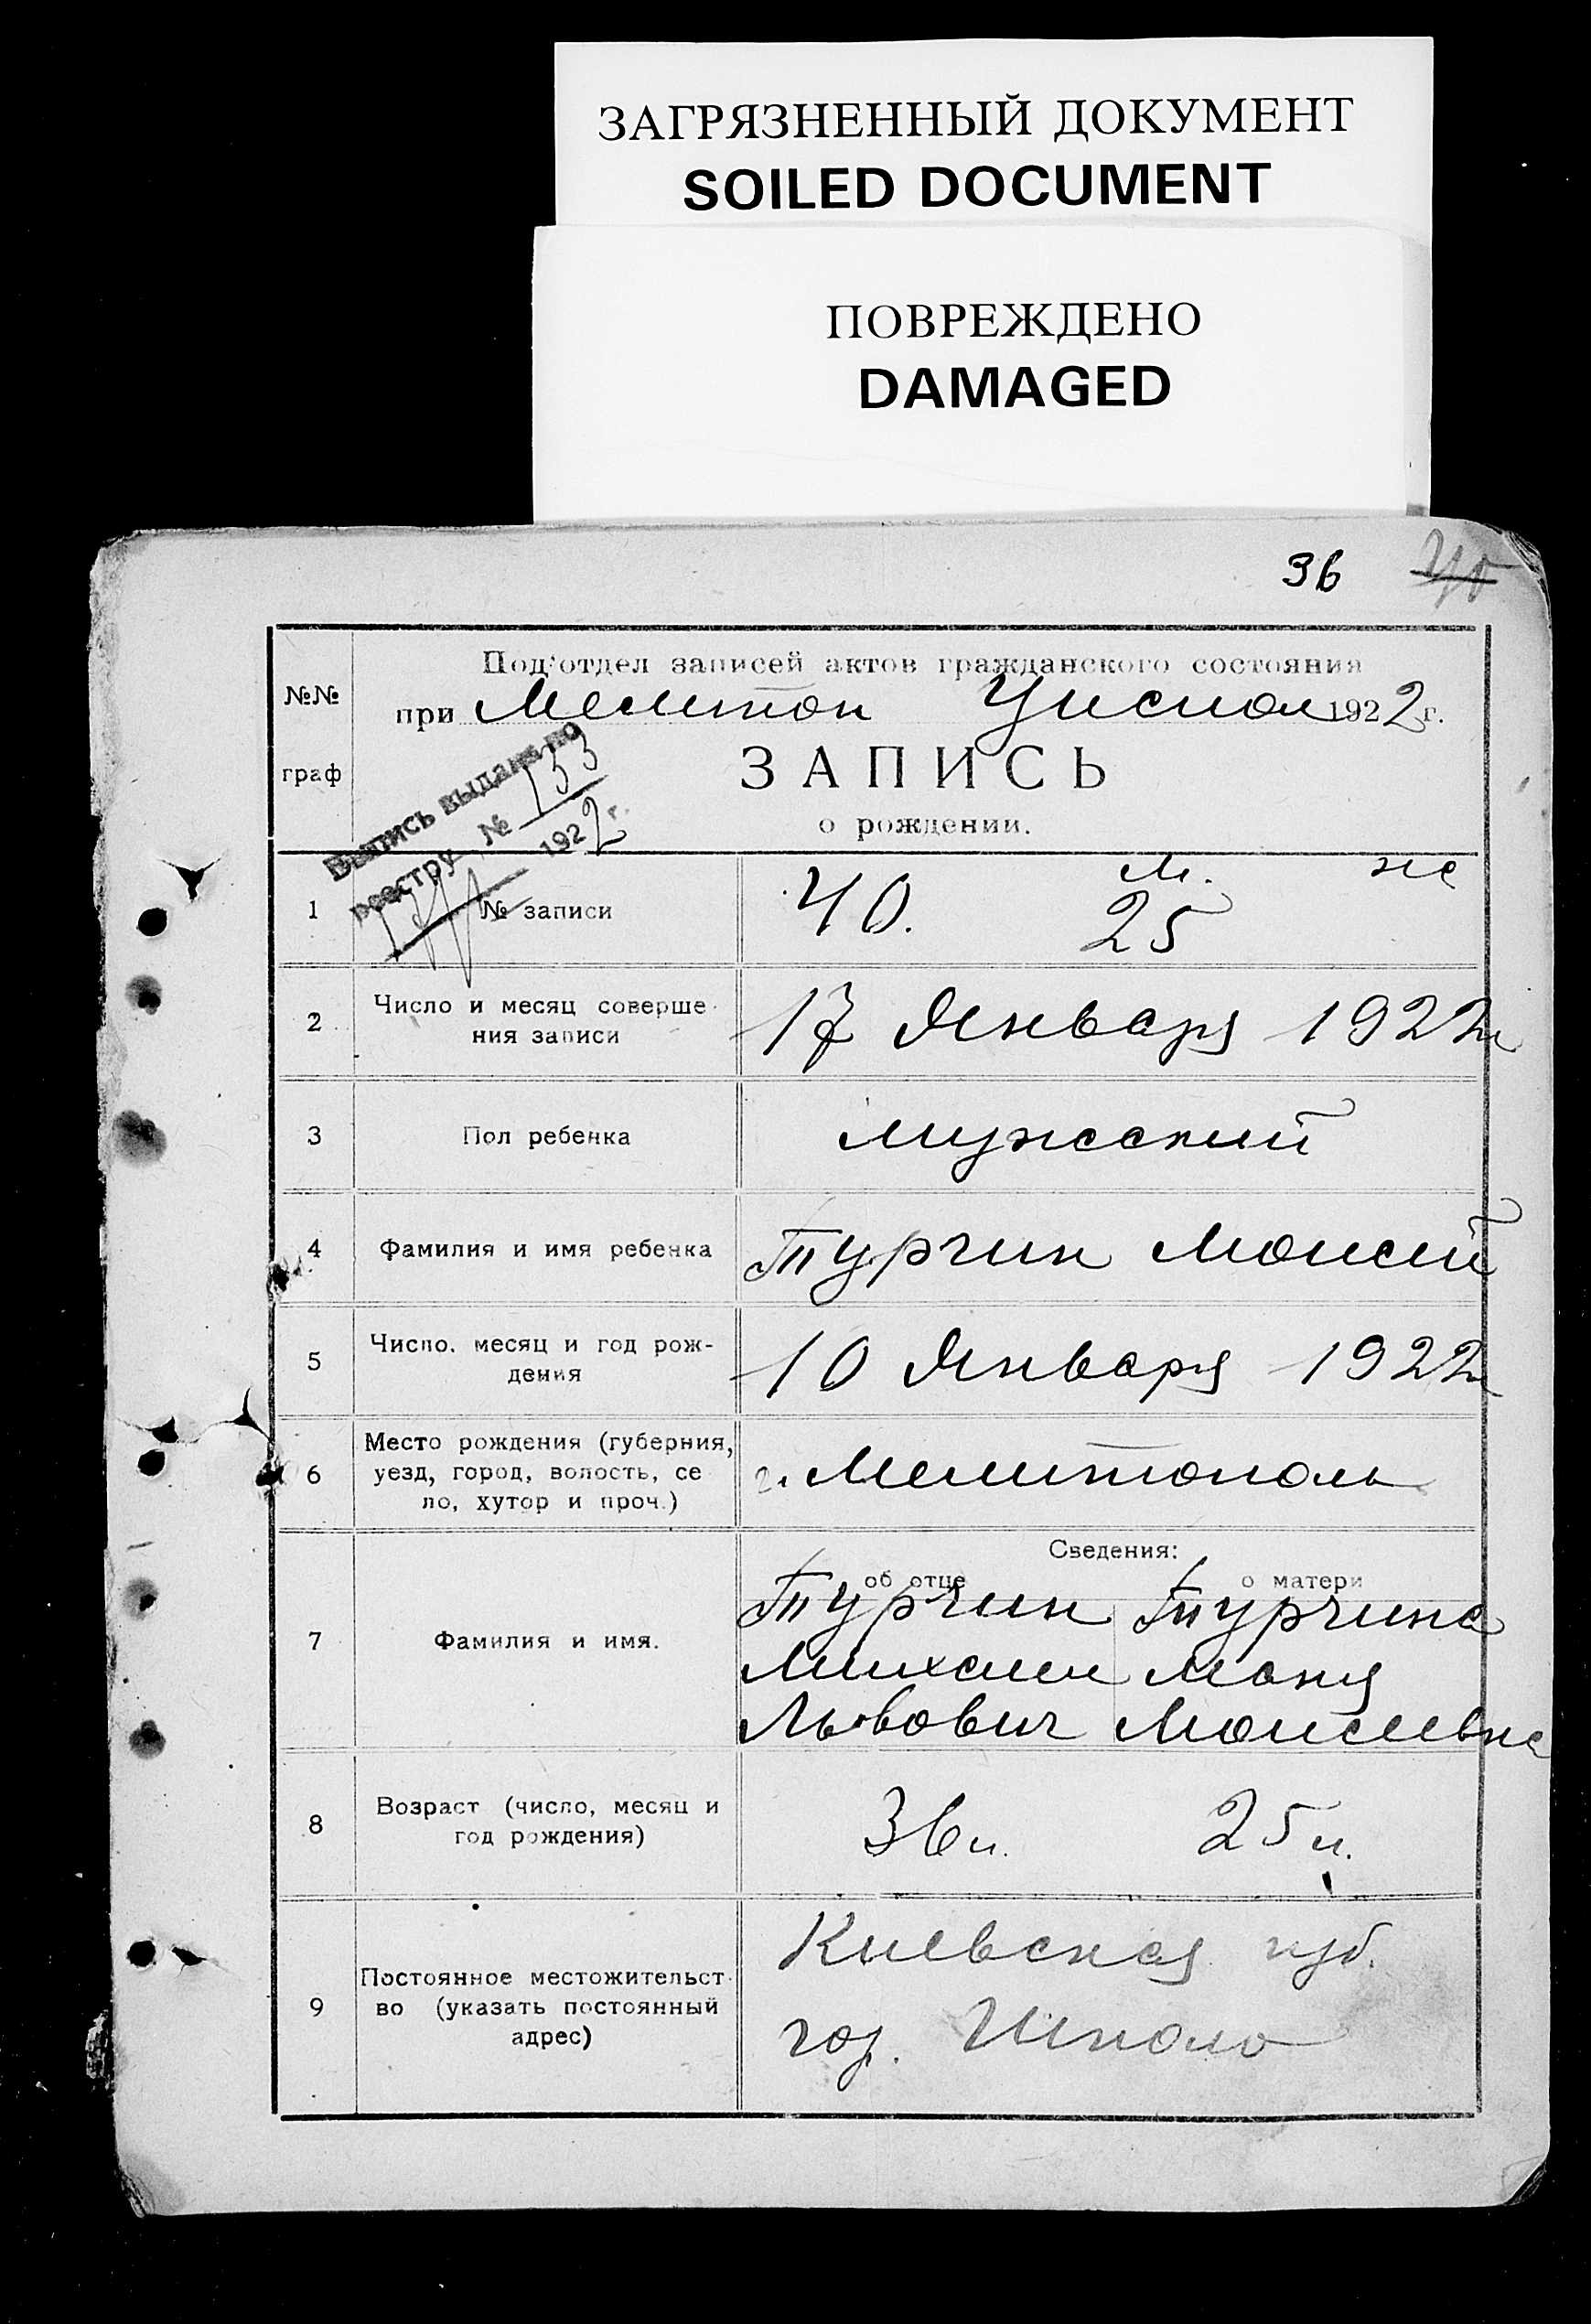 ЗАГРЯЗНЕННЫЙ ДОКУМЕНТ
SOILED DOCUMENT
ПОВРЕЖДЕНО
DAMAGED
36
№№ граф
Под'отдел записей актов гражданского состояния
при Мелитоп 1922 г.
ЗАПИСЬ
о рождении.
Выпись выдана по
реестру № 133
1922 г.
1 № записи 40. м. 25 же
2 Число и месяц соверше
ния записи 17 Января 1922 г
3 Пол ребенка мужской
4 Фамилия и имя ребенка Турчин Моисей
5 Число, месяц и год рож-
дения 10 Января 1922 г
6 Место рождения (губерния,
уезд, город, волость, се
ло, хутор и проч.) г. Мелитополь
Сведения:
об отце о матери
7 Фамилия и имя. Турчин Турчина
Михаил Маня
Львович Моисеевна
8 Возраст (число, месяц и
год рождения) 36 л. 25 л.
9 Постоянное местожительст
во (указать постоянный
адрес) Киевская губ.
гор. Шпола